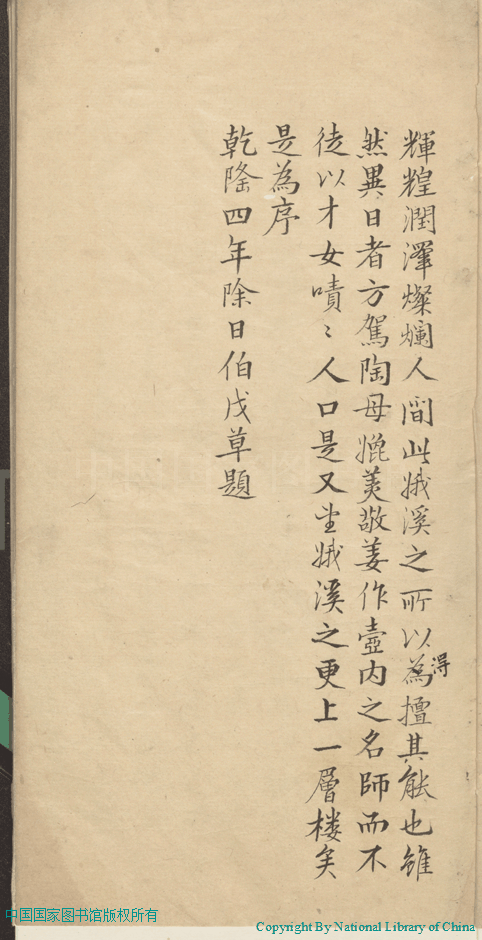 輝煌潤澤燦爛人間此娥溪之所以為擅其能也雖
得
然異日者方駕陶母媲美敬姜作壼内之名師而不
徒以才女嘖〻人口是又坐娥溪之更上一層楼矣
是為序
乾隆四年除日伯戊草題
中国国家图书馆版权所有
Copyright By National Library of China